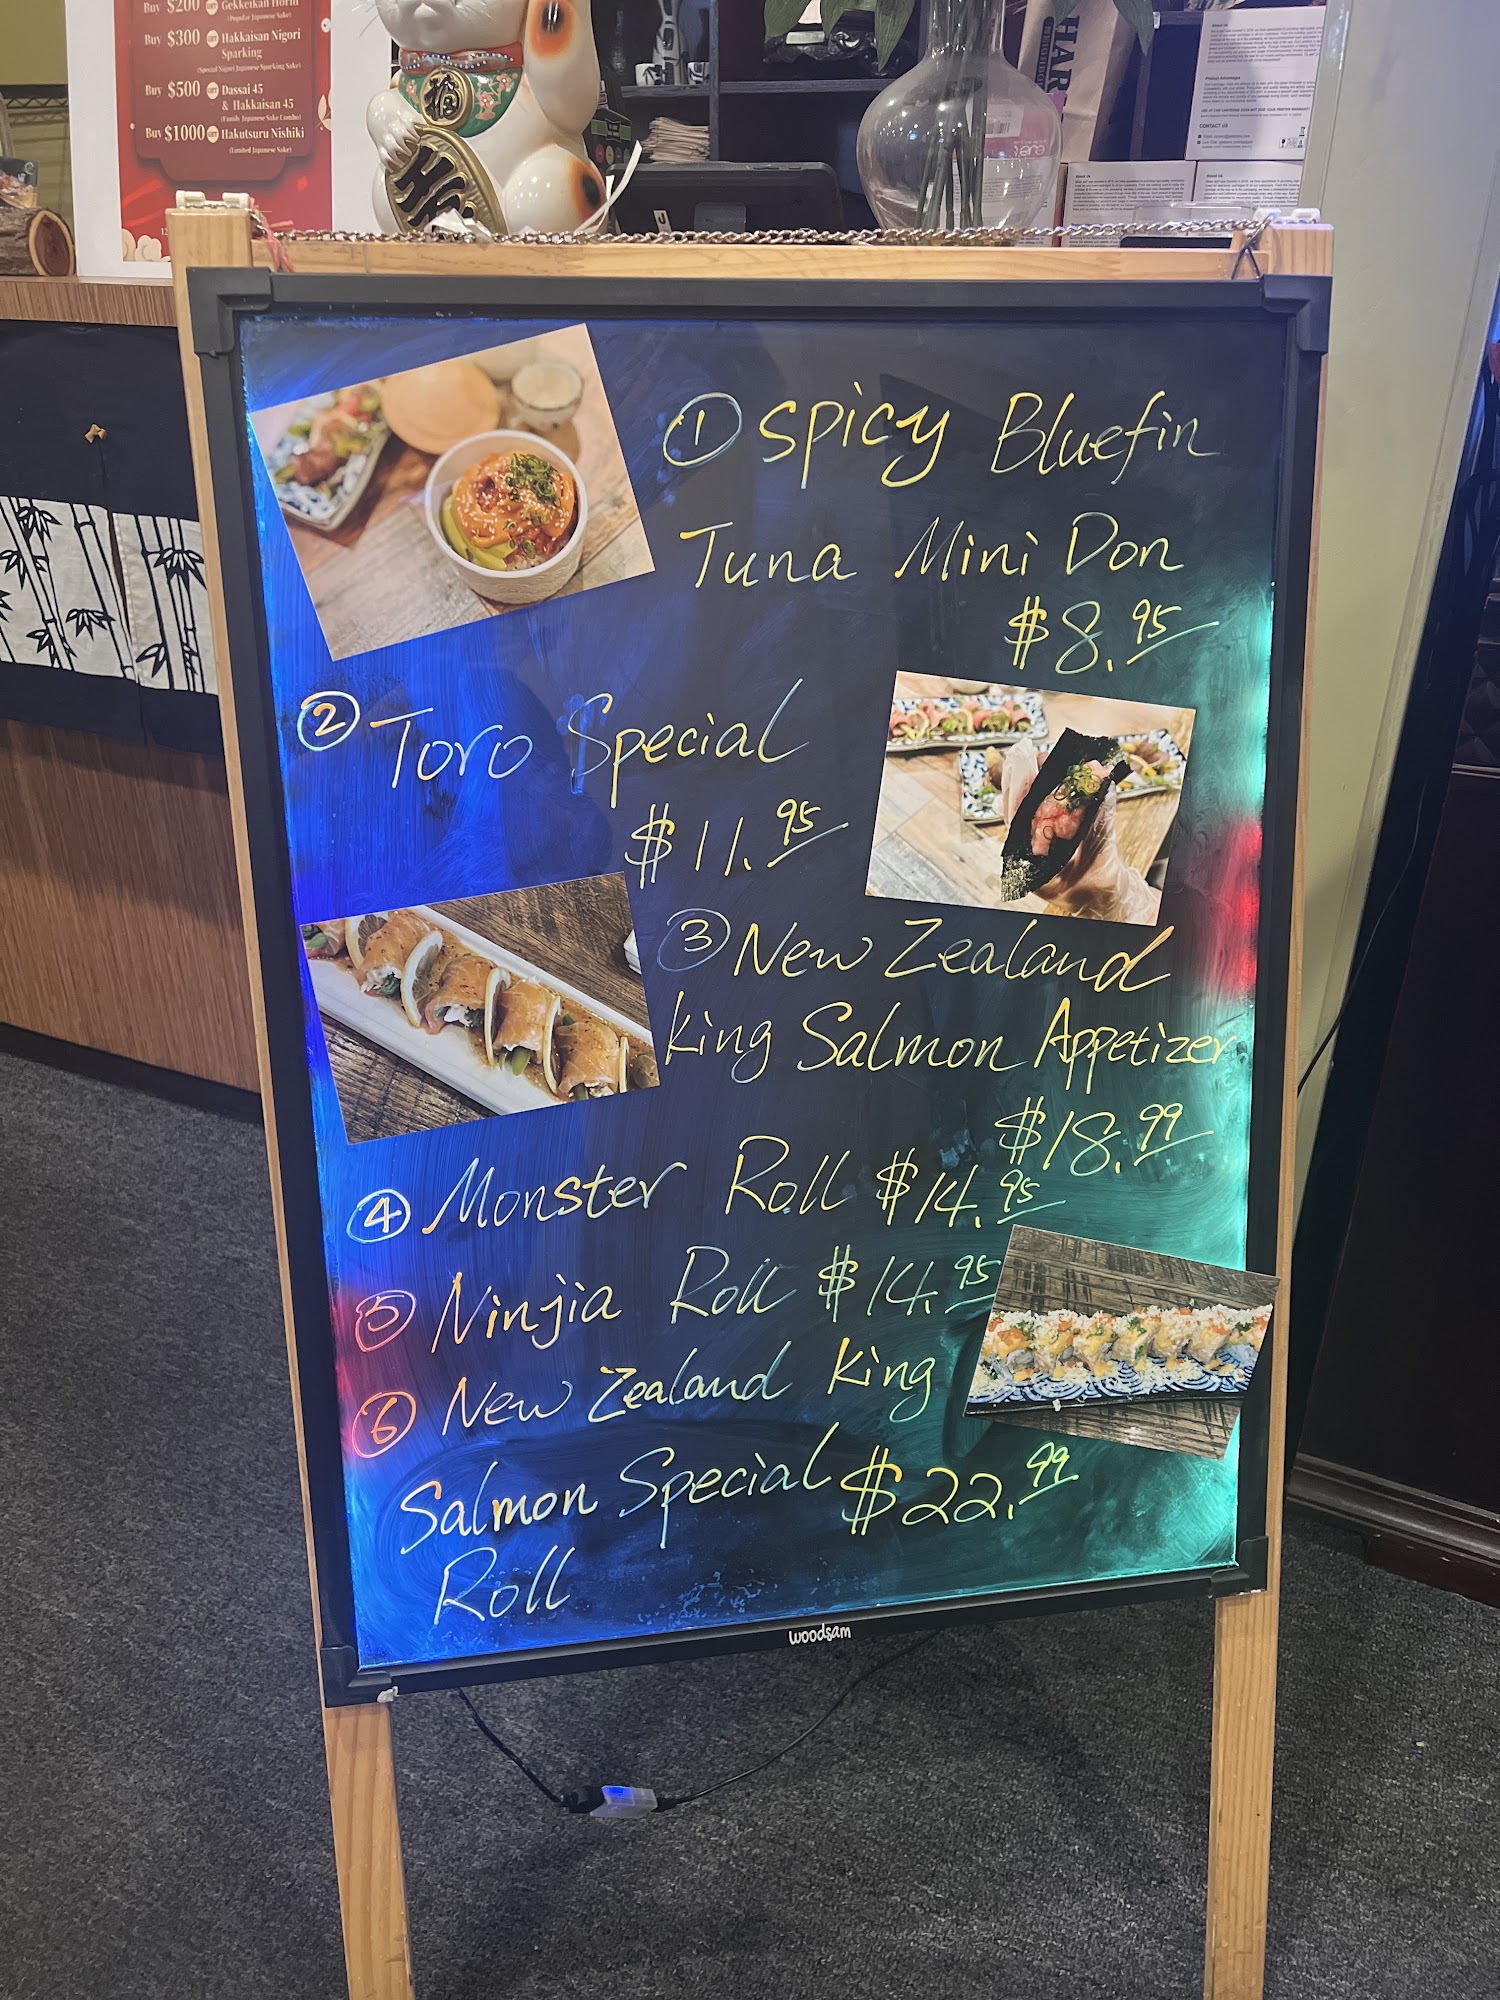 Buy $200 GET Gekkeikan Horin
(Popular Japanese Sake)
Buy $300 GET Hakkaisan Nigori
Sparking
(Special Nigori Japanese Sparking Sake)
Buy $500 GET Dassai 45
& Hakkaisan 45
(Family Japanese Sake Combo)
Buy $1000 GET Hakutsuru Nishiki
(Limited Japanese Sake)
福
About Us
Product Advantages
CONTACT US
About Us
About Us
① Spicy Bluefin
Tuna Mini Don
$8.95
② Toro Special
$11.95
③ New Zealand
King Salmon Appetizer
$18.99
④ Monster Roll $14.95
⑤ Ninjia Roll $14.95
⑥ New Zealand King
Salmon Special $22.99
Roll
woodsam